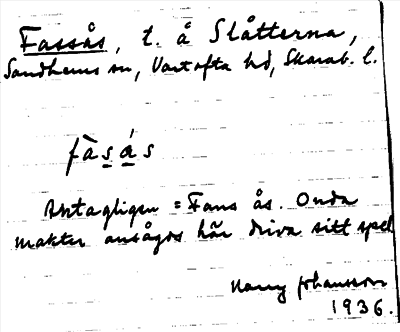 Fassås, t. å Slåtterna,
Sandhems sn, Vartofta hd, Skarab. l.
fàsás
Antagligen = Fans ås. Onda
makter ansågos här driva sitt spel
Harry Johansson
1936.